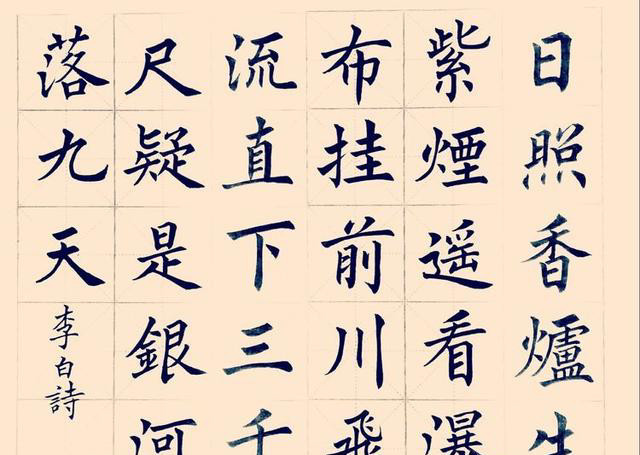 日照香爐生
紫煙遥看瀑
布挂前川飛
流直下三千
尺疑是銀河
落九天
李白詩